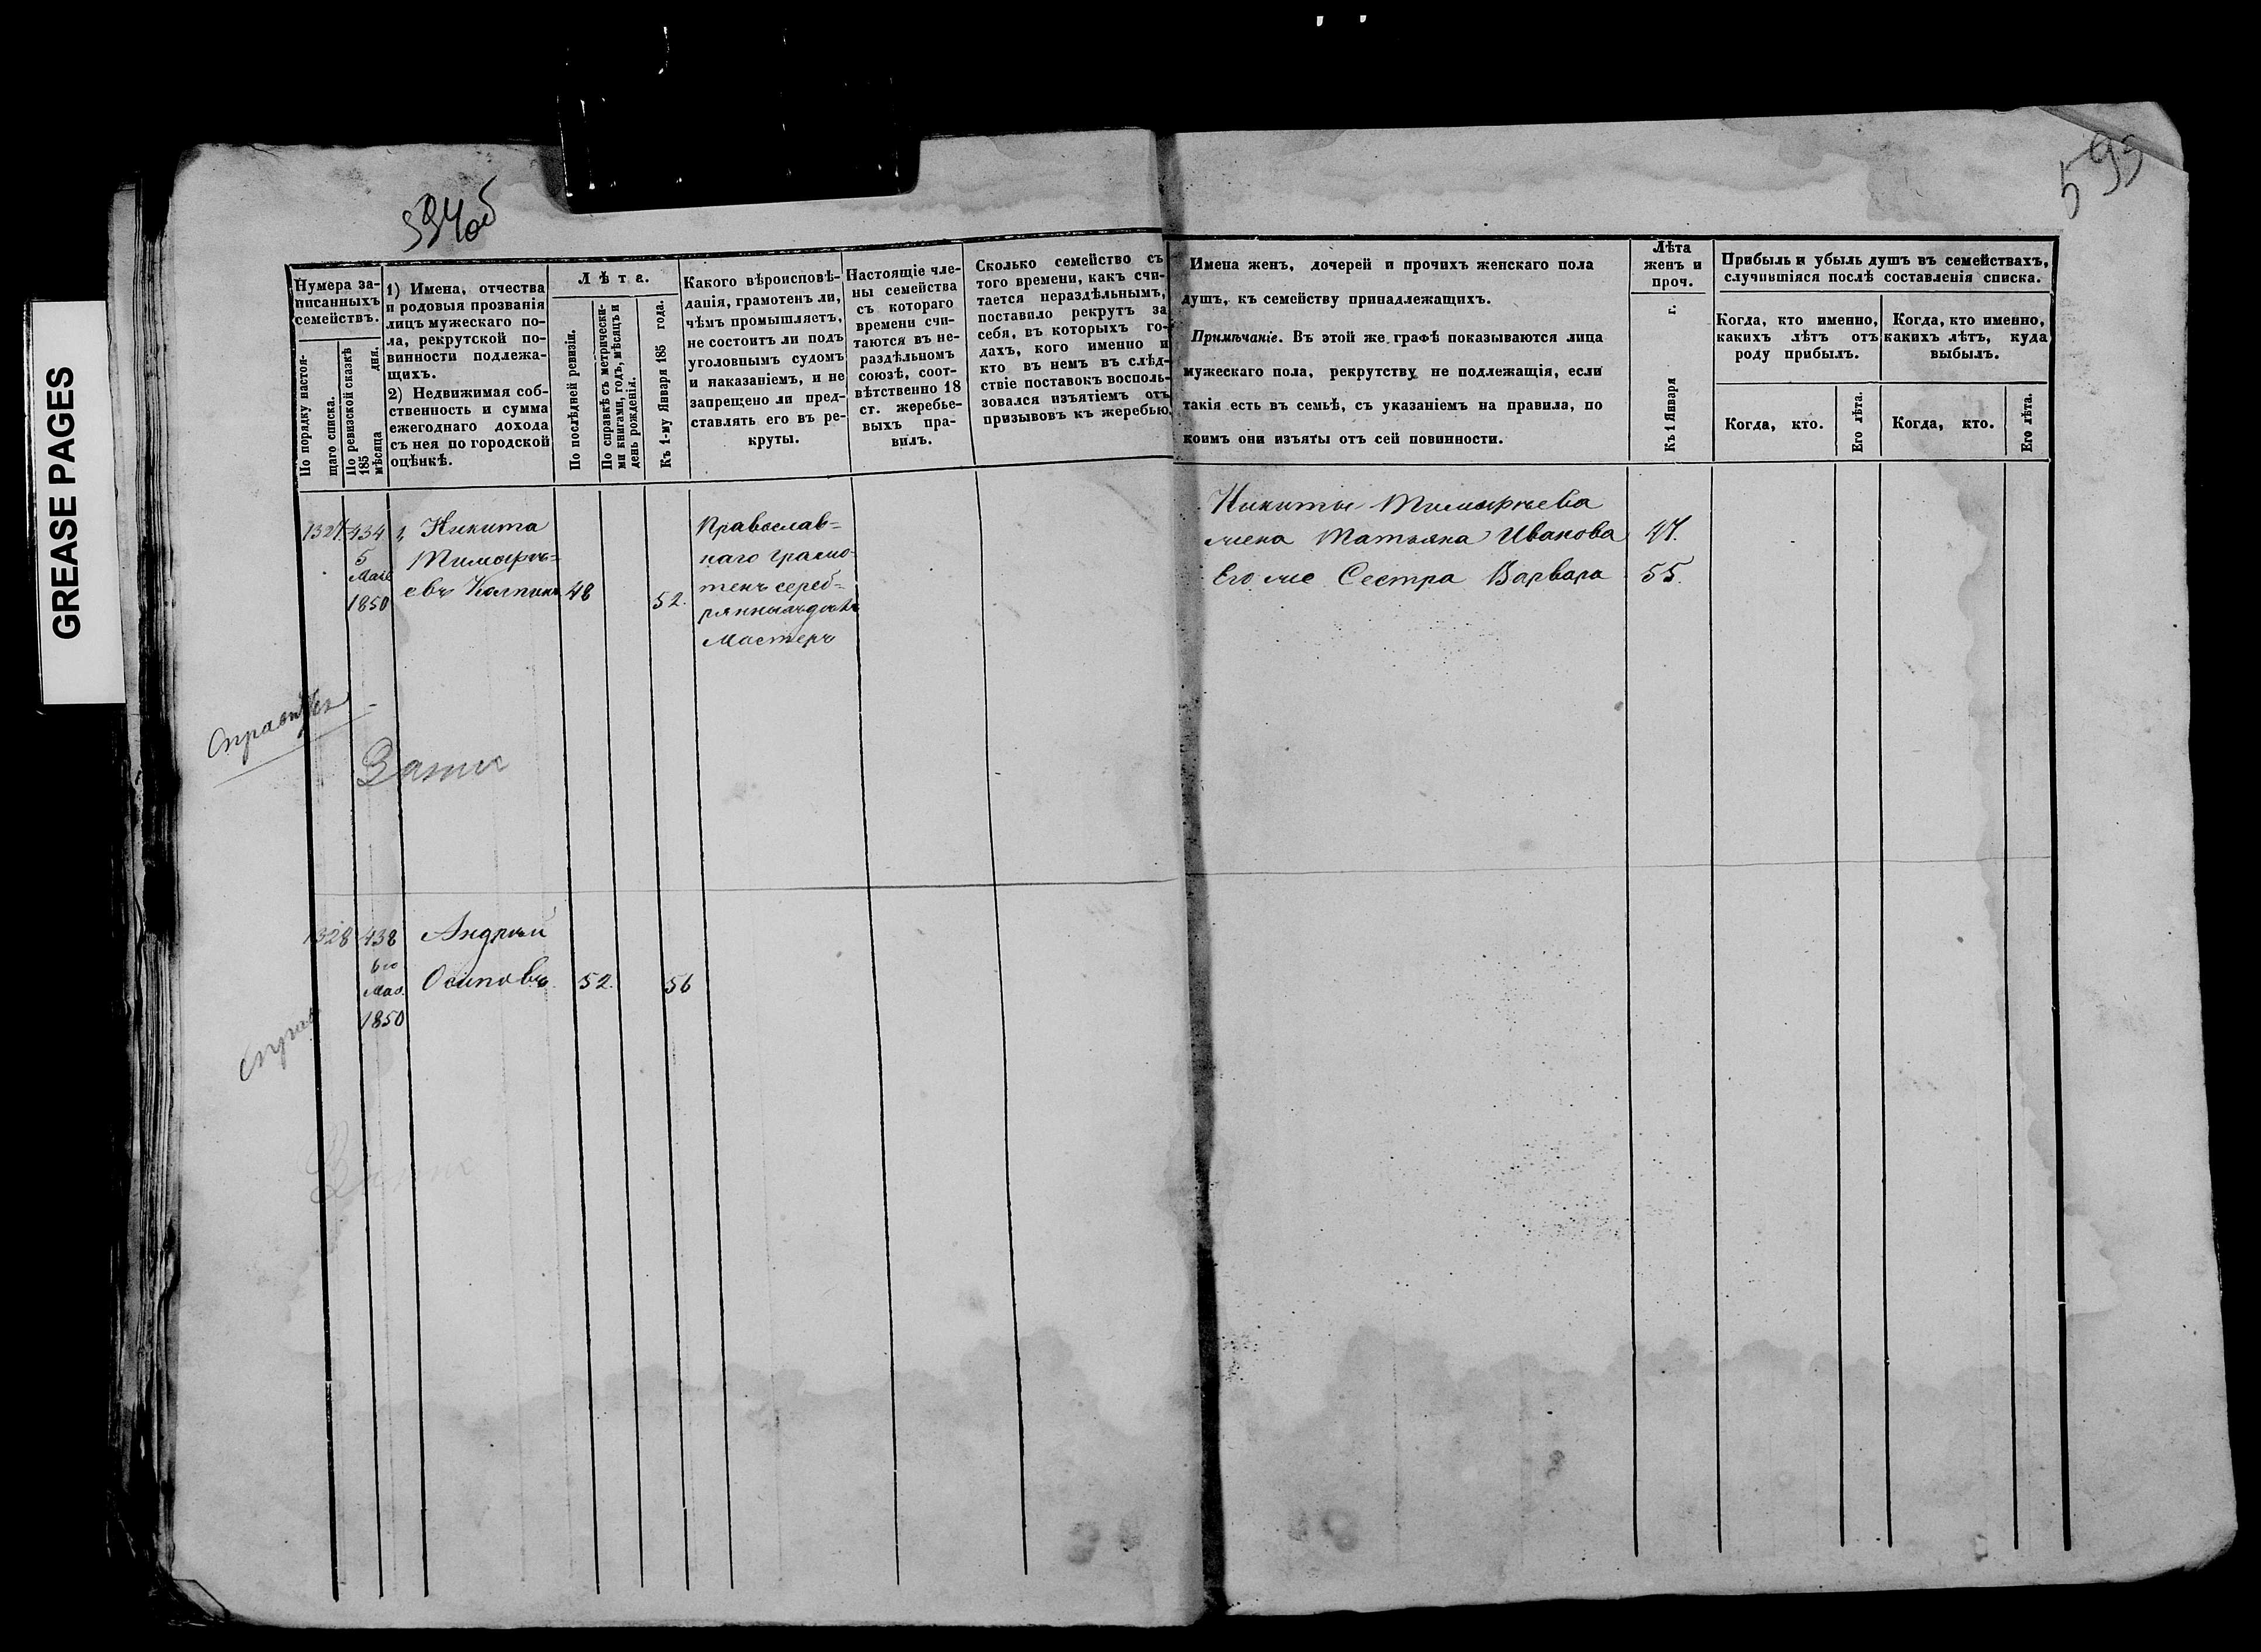 GREASE PAGES
594об
599
Нумера за-
писанныхъ
семействъ.
По порядку настоя-
щаго списка.
По ревизской сказкѣ
185 мѣсяца дня.
1) Имена, отчества
и родовыя прозванія
лицъ мужескаго по-
ла, рекрутской по-
винности подлежа-
щихъ.
2) Недвижимая соб-
ственность и сумма
ежегоднаго дохода
съ нея по городской
оцѣнкѣ.
Лѣта.
По послѣдней ревизіи.
По справкѣ съ метрически-
ми книгами, годъ, мѣсяцъ и
день рожденія.
Къ 1-му Января 185 года.
Какого вѣроисповѣ-
данія, грамотенъ ли,
чѣмъ промышляетъ,
не состоитъ ли подъ
уголовнымъ судомъ
и наказаніемъ, и не
запрещено ли пред-
ставлять его въ ре-
круты.
Настоящіе чле-
ны семейства
съ котораго
времени счи-
таются въ не-
раздѣльномъ
союзѣ, соот-
вѣтственно 18
ст. жеребье-
выхъ пра-
вилъ.
Сколько семейство съ
того времени, какъ счи-
тается нераздѣльнымъ,
поставило рекрутъ за
себя, въ которыхъ го-
дахъ, кого именно и
кто въ немъ въ слѣд-
ствіе поставокъ восполь-
зовался изъятіемъ отъ
призывовъ къ жеребью.
Имена женъ, дочерей и прочихъ женскаго пола
душъ, къ семейству принадлежащихъ.
Примѣчаніе. Въ этой же графѣ показываются лица
мужескаго пола, рекрутству не подлежащія, если
такія есть въ семьѣ, съ указаніемъ на правила, по
коимъ они изъяты отъ сей повинности.
Лѣта
женъ и
проч.
Къ 1 Января г.
Прибыль и убыль душъ въ семействахъ,
случившіяся послѣ составленія списка.
Когда, кто именно,
какихъ лѣтъ отъ
роду прибылъ.
Когда, кто именно,
какихъ лѣтъ, куда
выбылъ.
Когда, кто.
Его лѣта.
Когда, кто.
Его лѣта.
1327 434 1, Никита
5 Тимофѣ=
Мая
евъ 48 52.
1850
Православ=
наго грамо-
тенъ сереб-
Мастеръ
Никиты Тимофѣева
жена Татьяна Иванова 47.
Его же Сестра Варвара 55.
1328 438 Андрей
6го
Мая Осиповъ 52. 56
1850